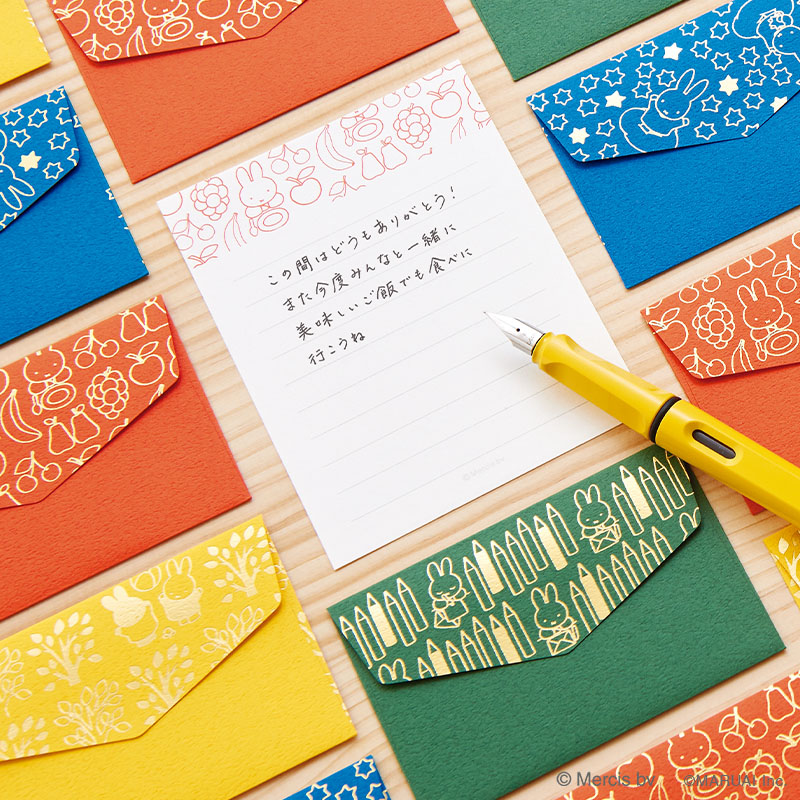 この間はどうもありがとう！
また今度みんなと一緒に
美味しいご飯でも食べに
行こうね
© Mercis bv
© Mercis bv ©MARUAI Inc.